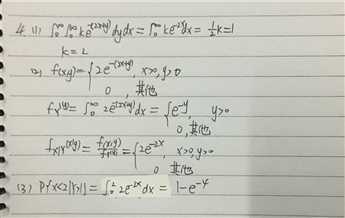 4. (1) ∫₀^∞∫₀^∞ke^-(2x+y)dydx = ∫₀^∞ke^-2xdx = ½k=1
k=2
(2) f(x,y)={2e^-(2x+y), x>0,y>0
0, 其他
fY(y)=∫₀^∞2e^-(2x+y)dx={e^-y, y>0
0, 其他
fX|Y(x|y)=f(x,y)/fY(y)={2e^-2x, x>0,y>0
0, 其他
(3) P{x<2|Y>1}=∫₀²2e^-2xdx=1-e^-4